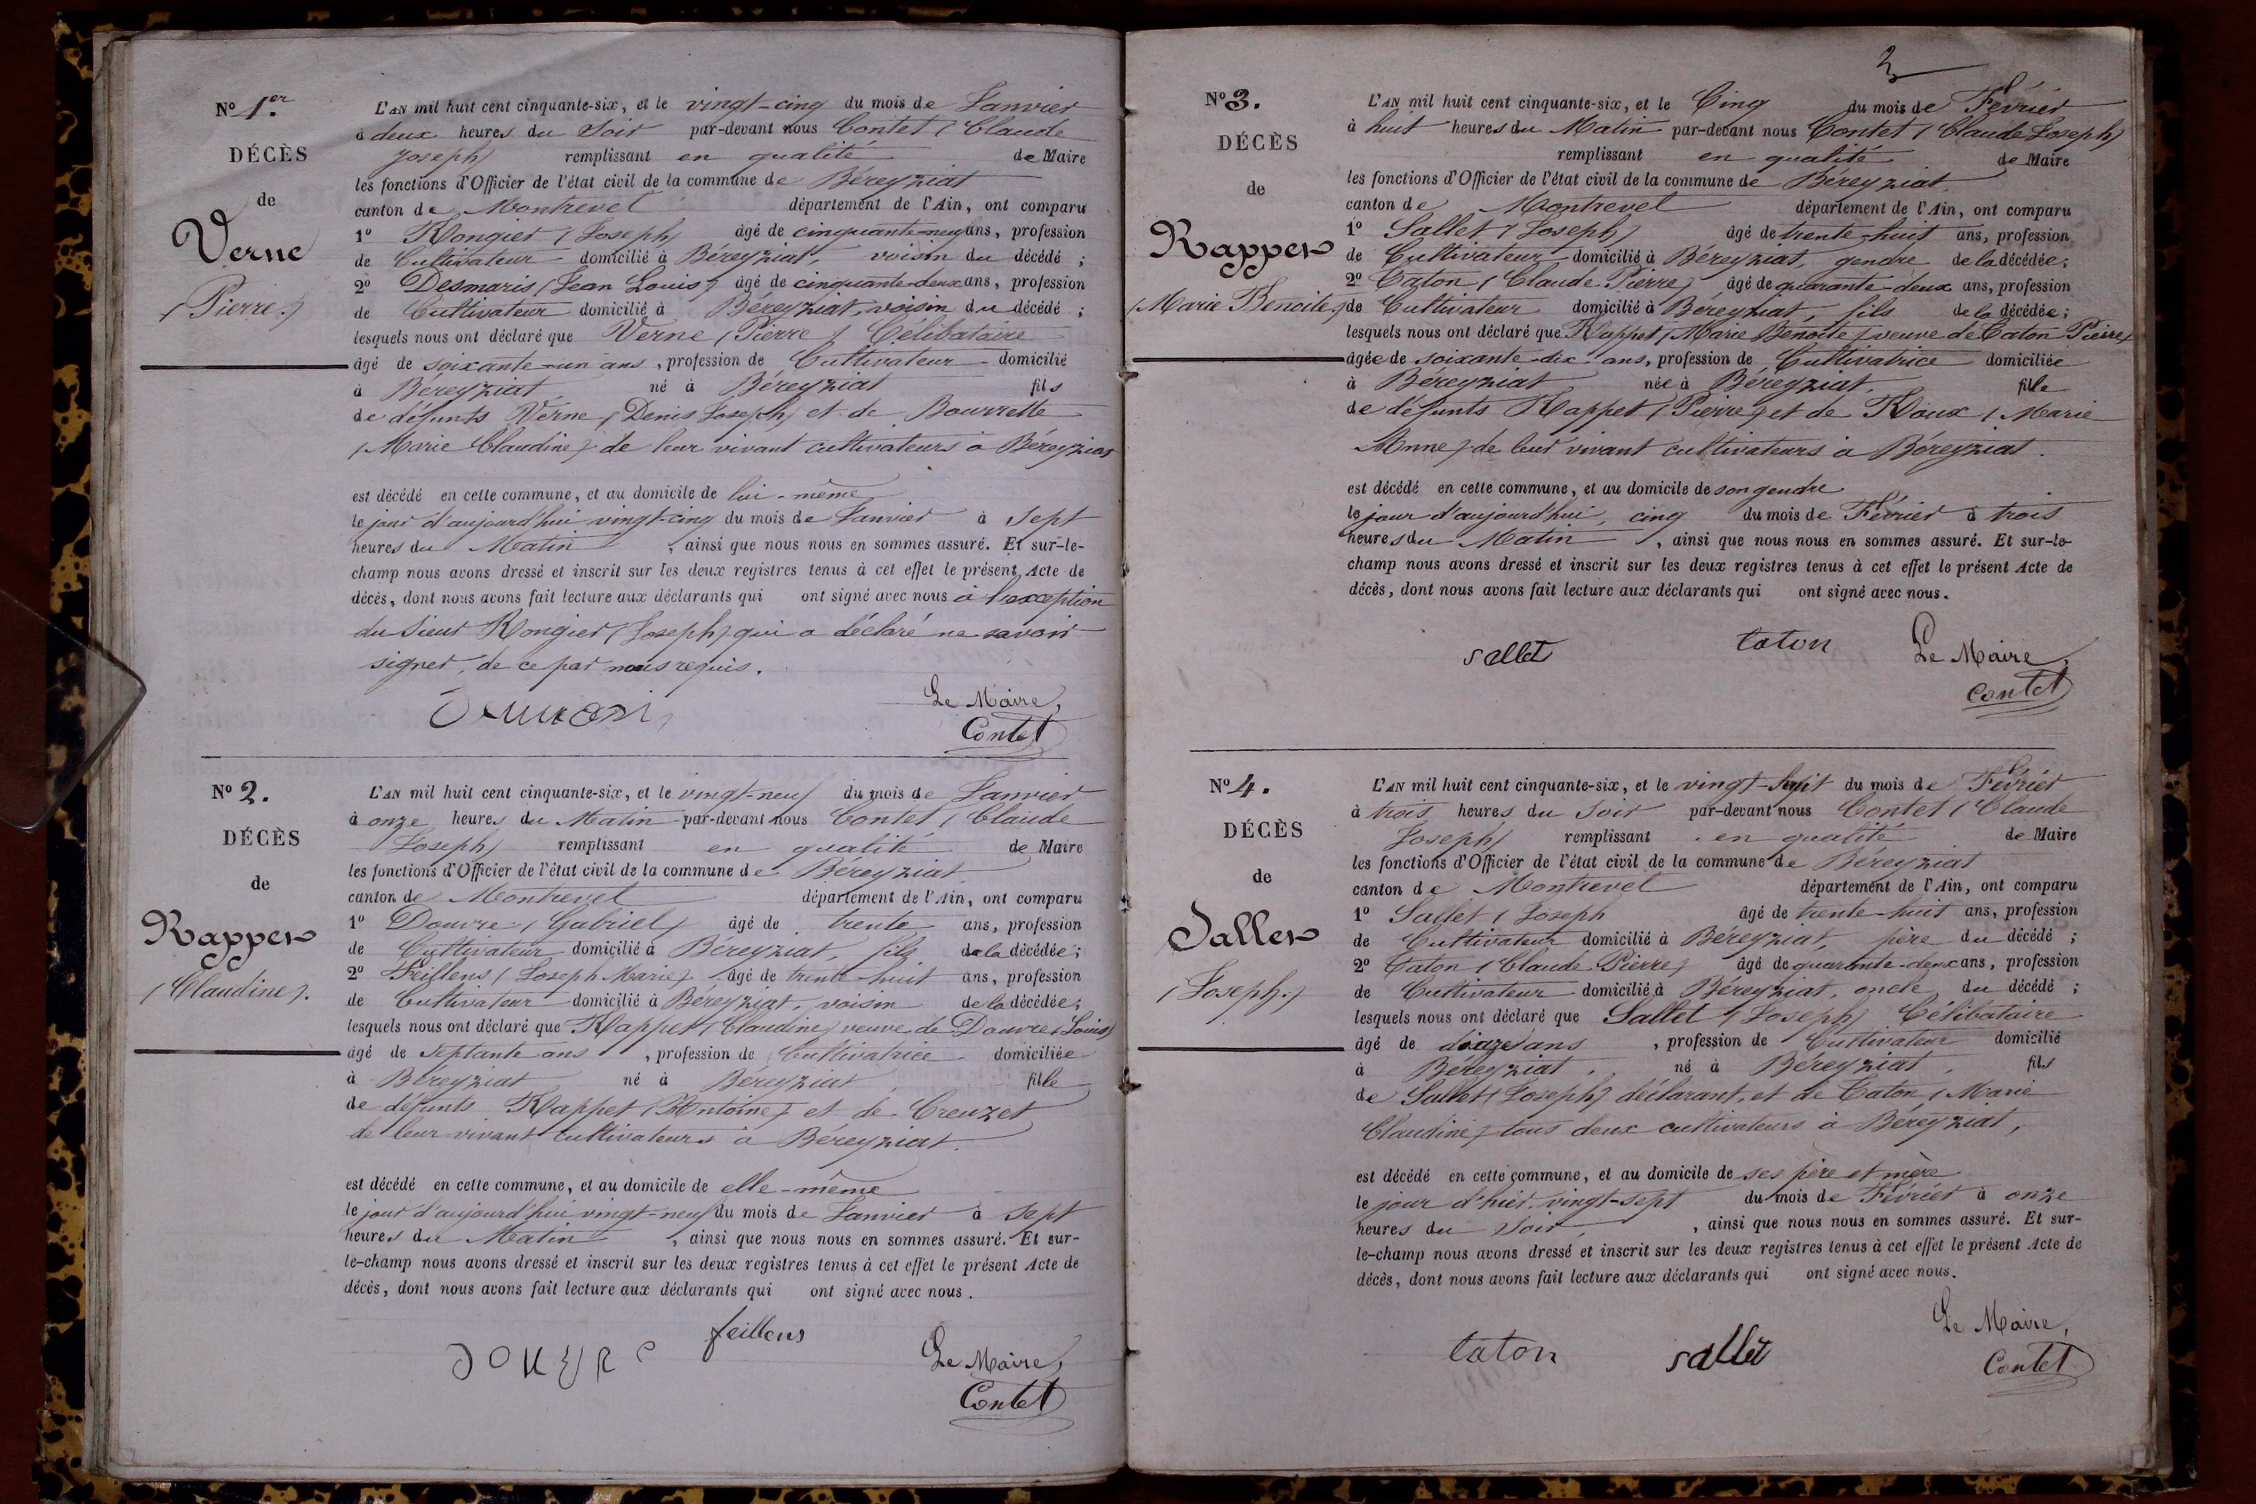 N° 1er.
DÉCÈS
de
Verne
(Pierre.)
L'AN mil huit cent cinquante-six, et le vingt-cinq du mois de Janvier
à deux heures du Soir par-devant nous Contet (Claude
Joseph) remplissant en qualité de Maire
les fonctions d'Officier de l'état civil de la commune de Béreyziat
canton de Montrevel département de l'Ain, ont comparu
1° Rongier (Joseph) âgé de cinquante-neuf ans, profession
de Cultivateur domicilié à Béreyziat, voisin du décédé ;
2° Desmaris (Jean Louis) âgé de cinquante-deux ans, profession
de Cultivateur domicilié à Béreyziat, voisin du décédé ;
lesquels nous ont déclaré que Verne (Pierre) Célibataire
âgé de soixante-un ans, profession de Cultivateur domicilié
à Bereyziat né à Béreyziat fils
de défunts Verne (Denis Joseph) et de Bourrette
(Marie Claudine) de leur vivant cultivateurs à Béreyziat
est décédé en cette commune, et au domicile de lui-même
le jour d'aujourd'hui vingt-cinq du mois de Janvier à Sept
heures du Matin, ainsi que nous nous en sommes assuré. Et sur-le-
champ nous avons dressé et inscrit sur les deux registres tenus à cet effet le présent Acte de
décès, dont nous avons fait lecture aux déclarants qui ont signé avec nous à l'exception
du Sieur Rongier (Joseph) qui a déclaré ne savoir
signer, de ce par nous requis.
Le Maire,
Contet
N° 2.
DÉCÈS
de
Rappet
(Claudine).
L'AN mil huit cent cinquante-six, et le vingt-neuf du mois de Janvier
à onze heures du Matin par-devant nous Contet (Claude
Joseph) remplissant en qualité de Maire
les fonctions d'Officier de l'état civil de la commune de Béreyziat
canton de Montrevel département de l'Ain, ont comparu
1° Douvre (Gabriel) âgé de trente ans, profession
de Cultivateur domicilié à Béreyziat, fils de la décédée ;
2° Feillens (Joseph Marie) âgé de trente-huit ans, profession
de Cultivateur domicilié à Béreyziat, voisin de la décédée ;
lesquels nous ont déclaré que Rappet (Claudine) veuve de Douvre (Louis)
âgé de septante ans, profession de Cultivatrice domiciliée
à Béreyziat né à Béreyziat fille
de défunts Rappet (Antoine) et de Creuzet
de leur vivant cultivateurs à Béreyziat.
est décédé en cette commune, et au domicile de elle-même
le jour d'aujourd'hui vingt-neuf du mois de Janvier à Sept
heures du Matin, ainsi que nous nous en sommes assuré. Et sur-
le-champ nous avons dressé et inscrit sur les deux registres tenus à cet effet le présent Acte de
décès, dont nous avons fait lecture aux déclarants qui ont signé avec nous.
feillens
Le Maire,
Contet
3
N° 3.
DÉCÈS
de
Rappet
(Marie Benoite.)
L'AN mil huit cent cinquante-six, et le Cinq du mois de Février
à huit heures du Matin par-devant nous Contet (Claude Joseph)
remplissant en qualité de Maire
les fonctions d'Officier de l'état civil de la commune de Béreyziat
canton de Montrevel département de l'Ain, ont comparu
1° Sallet (Joseph) âgé de trente-huit ans, profession
de Cultivateur domicilié à Béreyziat, gendre de la décédée ;
2° Caton (Claude Pierre) âgé de quarante-deux ans, profession
de Cultivateur domicilié à Béreyziat, fils de la décédée ;
lesquels nous ont déclaré que Rappet (Marie Benoite) veuve de Caton Pierre)
âgée de soixante-dix ans, profession de Cultivatrice domiciliée
à Béreyziat née à Béreyziat fille
de défunts Rappet (Pierre) et de Roux (Marie
Anne) de leur vivant cultivateurs à Béreyziat.
est décédé en cette commune, et au domicile de son gendre
le jour d'aujourd'hui, cinq du mois de Février à trois
heures du Matin, ainsi que nous nous en sommes assuré. Et sur-le-
champ nous avons dressé et inscrit sur les deux registres tenus à cet effet le présent Acte de
décès, dont nous avons fait lecture aux déclarants qui ont signé avec nous.
sallet caton Le Maire,
Contet
N° 4.
DÉCÈS
de
Sallet
(Joseph.)
L'AN mil huit cent cinquante-six, et le vingt-huit du mois de Février
à trois heures du Soir par-devant nous Contet (Claude
Joseph) remplissant en qualité de Maire
les fonctions d'Officier de l'état civil de la commune de Béreyziat
canton de Montrevel département de l'Ain, ont comparu
1° Sallet (Joseph âgé de trente-huit ans, profession
de Cultivateur domicilié à Béreyziat, père du décédé ;
2° Caton (Claude Pierre) âgé de quarante-deux ans, profession
de Cultivateur domicilié à Béreyziat, oncle du décédé ;
lesquels nous ont déclaré que Sallet (Joseph) Célibataire
âgé de ans, profession de Cultivateur domicilié
à Béreyziat, né à Béreyziat, fils
de Sallet (Joseph) déclarant, et de Caton (Marie
Claudine) tous deux cultivateurs à Béreyziat,
est décédé en cette commune, et au domicile de ses père et mère
le jour d'hier vingt-sept du mois de Février à onze
heures du Soir, ainsi que nous nous en sommes assuré. Et sur-
le-champ nous avons dressé et inscrit sur les deux registres tenus à cet effet le présent Acte de
décès, dont nous avons fait lecture aux déclarants qui ont signé avec nous.
caton sallet Le Maire,
Contet